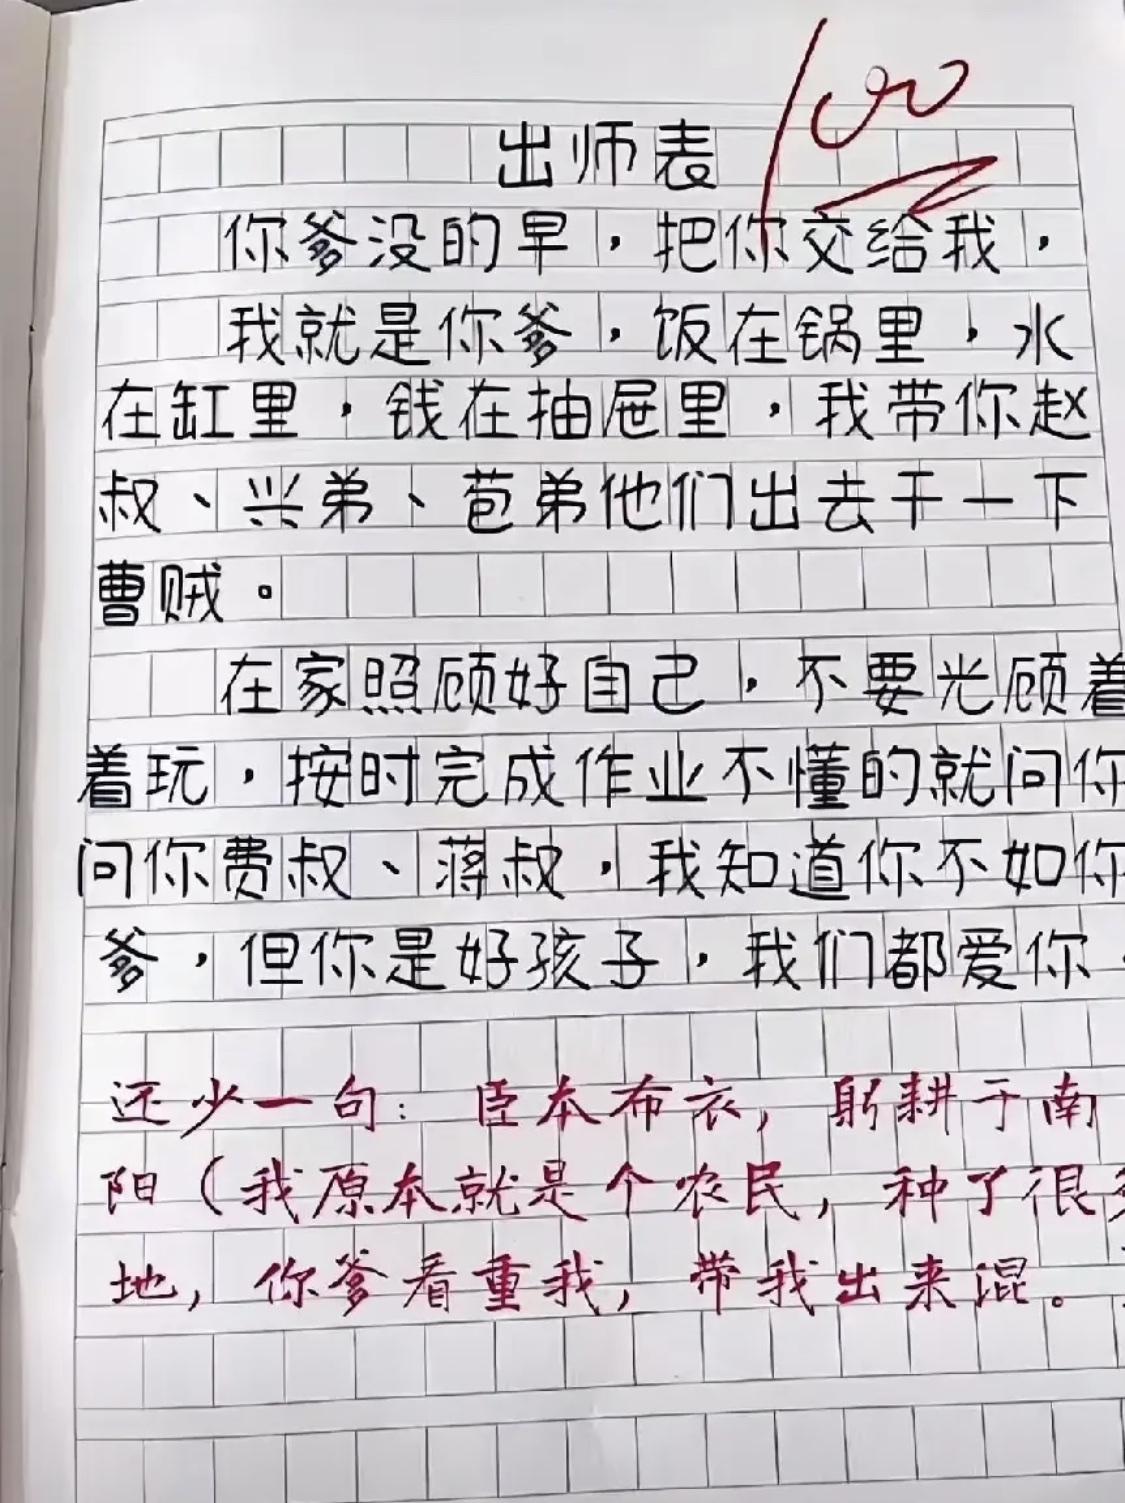 出师表
100
你爹没的早，把你交给我，
我就是你爹，饭在锅里，水
在缸里，钱在抽屉里，我带你赵
叔、兴弟、苞弟他们出去干一下
曹贼。
在家照顾好自己，不要光顾着
着玩，按时完成作业不懂的就问你
问你费叔、蒋叔，我知道你不如你
爹，但你是好孩子，我们都爱你，
还少一句：臣本布衣，躬耕于南
阳（我原本就是个农民，种了很多
地，你爹看重我，带我出来混。